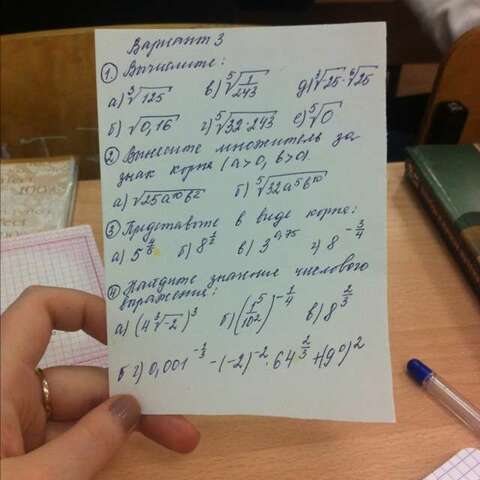 Вариант 3
① Вычислите:
а) ∛125 в) ⁵√(1/243) д) ∛25 · ⁶√25
б) √0,16 г) ⁵√(32·243) е) ⁵√0
② Вынесите множитель за
знак корня (а>0, b>0)
а) √(25a¹⁰b²) б) ⁵√(32a⁵b¹⁰)
③ Представьте в виде корня:
а) 5^ б) 8^(1/2) в) 3^(0,75) г) 8^(-3/4)
④ Найдите значение числового
выражения:
а) (4∛-2)³ б) (1⁵/102)^(-1/4) в) 8^(2/3)
г) 0,001^(-1/3) - (-2)^(-2) · 64^(2/3) + (9⁰)²